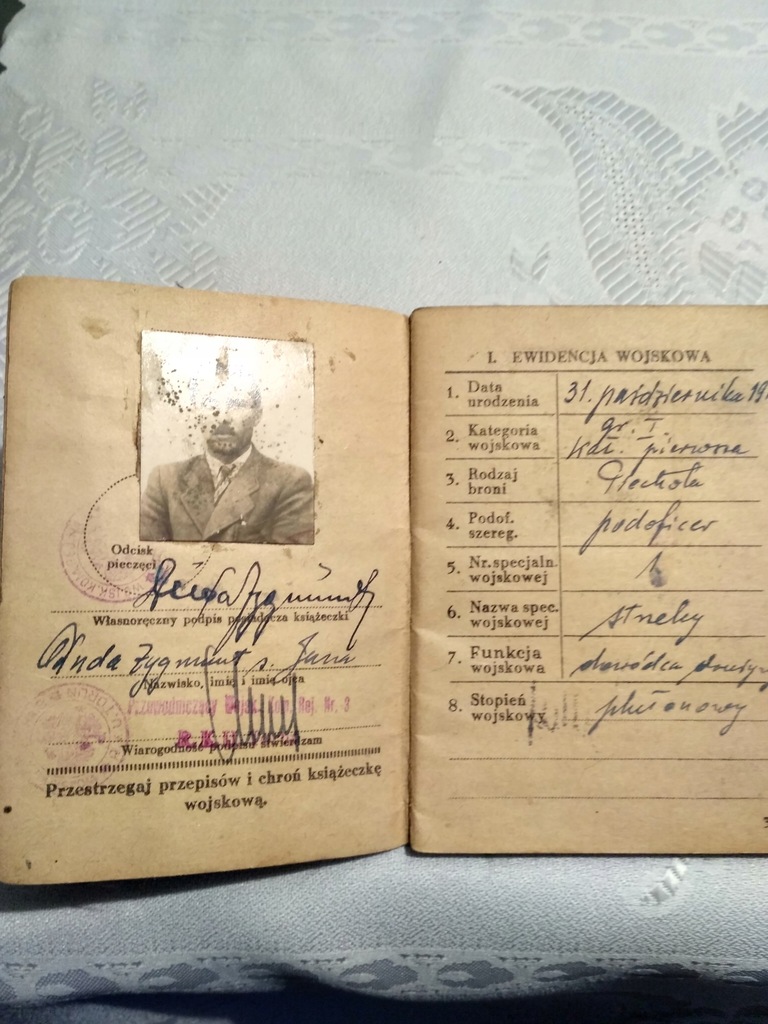 Odcisk
pieczęci
Zygmunt
Własnoręczny podpis posiadacza książeczki
Zygmunt s. Jana
Nazwisko, imię i imię ojca
Przewodniczący Wojsk. Kom. Rej. Nr. 3
R.K.U.
Wiarogodność podpisu stwierdzam
Przestrzegaj przepisów i chroń książeczkę
wojskową.
I. EWIDENCJA WOJSKOWA
1. Data urodzenia 31. października 19
2. Kategoria wojskowa gr. I. kat. pierwsza
3. Rodzaj broni Piechota
4. Podof. szereg. podoficer
5. Nr. specjaln. wojskowej 1
6. Nazwa spec. wojskowej
7. Funkcja wojskowa dowódca drużyny
8. Stopień wojskowy plutonowy